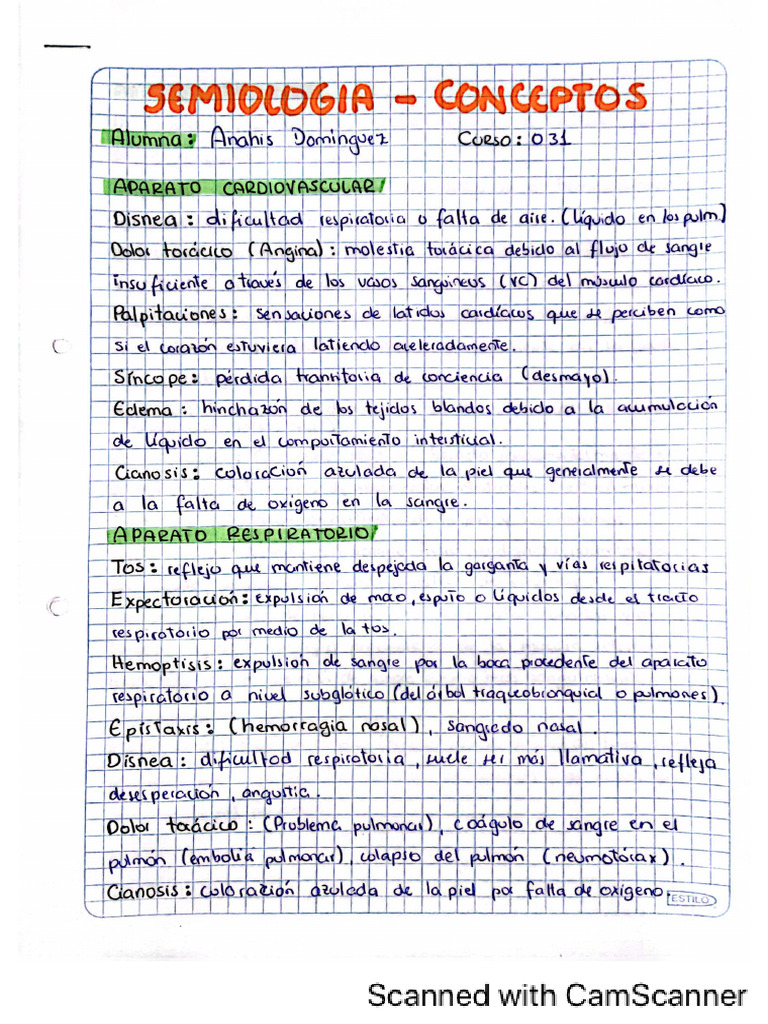 SEMIOLOGIA - CONCEPTOS
Alumna: Anahis Dominguez Curso: 031
APARATO CARDIOVASCULAR/
Disnea: dificultad respiratoria o falta de aire. (líquido en los pulm)
Dolor torácico (Angina): molestia torácica debido al flujo de sangre
insuficiente a través de los vasos sanguíneos (VC) del músculo cardíaco.
Palpitaciones: sensaciones de latidos cardíacos que se perciben como
si el corazón estuviera latiendo aceleradamente.
Síncope: pérdida tranritoria de conciencia (desmayo).
Edema: hinchazón de los tejidos blandos debido a la acumulación
de líquido en el compoitamiento intersticial.
Cianosis: coloración azulada de la piel que generalmente se debe
a la falta de oxígeno en la sangre.
APARATO RESPIRATORIO/
Tos: reflejo que mantiene despejada la garganta y vías respitatorias
Expectoración: expulsión de moco, esputo o líquidos desde el tracto
respiratorio por medio de la tos.
Hemoptisis: expulsión de sangre por la boca procedente del aparato
respiratorio a nivel subglótico (del árbol traqueobronquial o pulmones).
Epistaxis: (hemorragia nasal), sangrado nasal.
Disnea: dificultad respiratoria, suele ser más llamativa, refleja
desesperación, angustia.
Dolor torácico: (Problema pulmonar), coágulo de sangre en el
pulmón (embolia pulmonar), colapso del pulmón (neumotórax).
Cianosis: coloración azulada de la piel por falta de oxígeno
ESTILO
Scanned with CamScanner